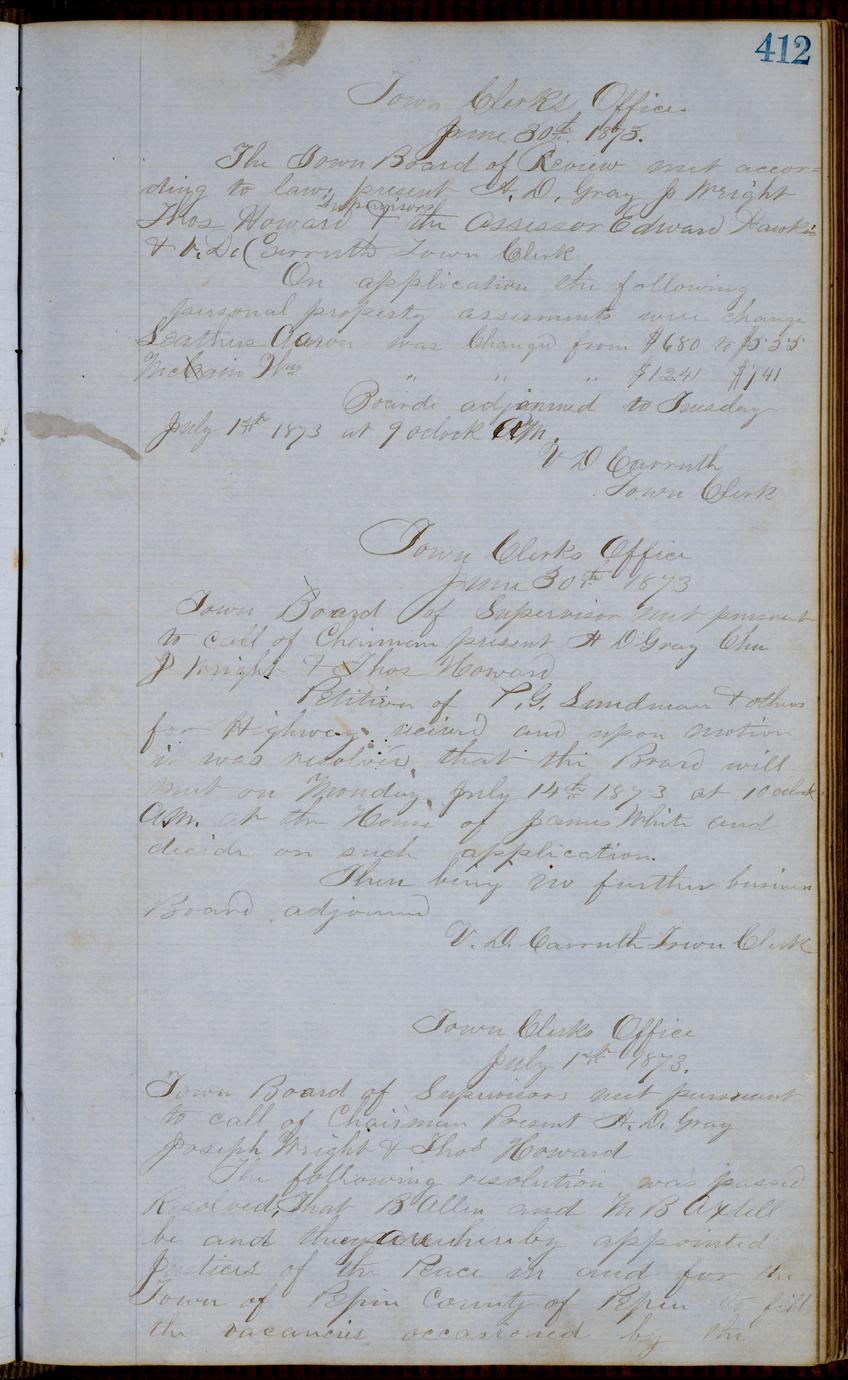 412
Town Clerks Office
June 30th. 1873.
The Town Board of Review met accor=
ding to law; present H. D. Gray J Wright
Supervisors
Thos Howard & the Assessor Edward Hawkins
& V. D. Carruth Town Clerk
On application the following
personal property assesments were change
Seathers Aaron was Changed from $680 to $535
McCain Thos " " " $1241 $741
Boarde adjourned to Tuesday
July 1st 1873 at 9 oclock AM.
V D Carruth
Town Clerk
Town Clerks Office
June 30th 1873
Town Board of Supervisor met pursuant
to call of Chairman present H D Gray Chm
J Wright & Thos Howard
Petition of P. G. Sundman & others
for Highway recieved and upon motion
it was resolved that the Board will
meet on Monday July 14th 1873 at 10 oclock
AM. at the House of James White and
decide on such application.
Then being no further business
Board adjourned
V. D. Carruth Town Clerk
Town Clerks Office
July 1st 1873.
Town Board of Supervisors met pursuant
to call of Chairman Present H. D. Gray
Joseph Wright & Thos Howard
The following resolution was passed
Resolved, That B Allen and M B Axtell
be and they are hereby appointed
Justices of the Peace in and for the
Town of Pepin County of Pepin to fill
the vacancies occasioned by the